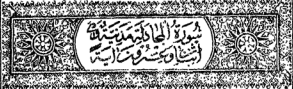 سورة المجادلة مدنية وهي
اثنتان وعشرون آية